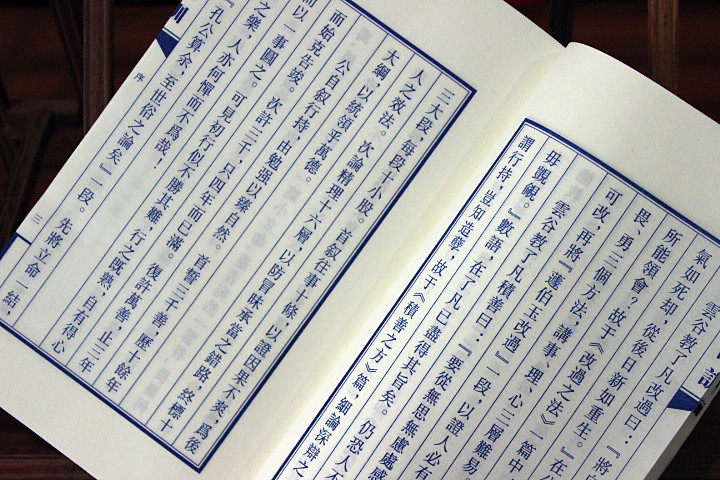 雲谷教了凡改過曰：『將
氣如死却，從後日新如重生。』在
所能領會？故于《改過之法》一篇中
畏、勇三個方法，講事、理、心三層難易。
可改，再將『蘧伯玉改過』一段，以證人必有
雲谷教了凡積善曰：『要從無思無慮處感
毋覬覦。』數語，在了凡已盡得其旨矣。仍恐人不
謂行持，豈知造孽，故于《積善之方》篇，細論深辯之
三大段，每段十小股。首叙往事十條，以證因果不爽，爲後
人之效法。次論精理十六層，以防冒昧承當之錯路，終標十
大綱，以統領乎萬德。
公自叙行持，由勉强以臻自然。首誓三千善，歷十餘年
而始克告竣。次許三千，只四年而已滿。復許萬善，止三年
而以一事圓之。可見初行似不勝其難，行之既熟，自有得心
之樂，人亦何憚而不爲哉！
『孔公算余，至世俗之論矣』一段。先將立命一結，
訓
序
三